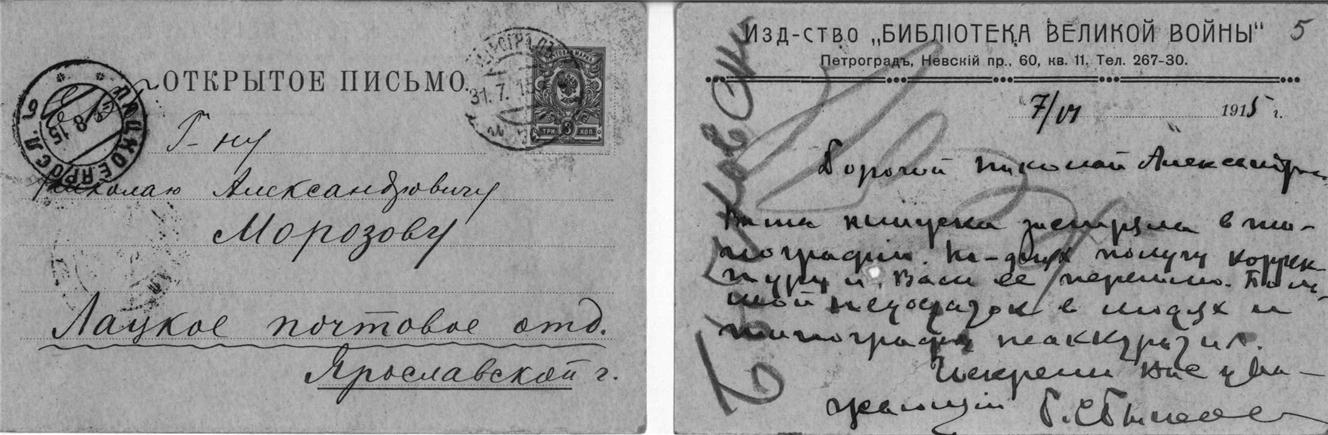 ОТКРЫТОЕ ПИСЬМО.
ПЕТРОГРАДЪ
31.7.15
ТРИ 3 КОП.
ЛАЦКОЕ ЯРОСЛ.
8 15
Г-ну
Николаю Александровичу
Морозову
Лацкое почтовое отд.
Ярославской г.
5
Изд-ство „БИБЛІОТЕКА ВЕЛИКОЙ ВОЙНЫ"
Петроградъ, Невскій пр., 60, кв. 11, Тел. 267-30.
7/VI 1915 г.
Дорогой Николай Александр
Ваша книжка застряла в ти-
пографіи. На-днях получу коррек-
туру и Вам ее перешлю. Боль-
шой недостаток в людях и
типографія неаккуратна.
Искренно Вас ува-
жающій